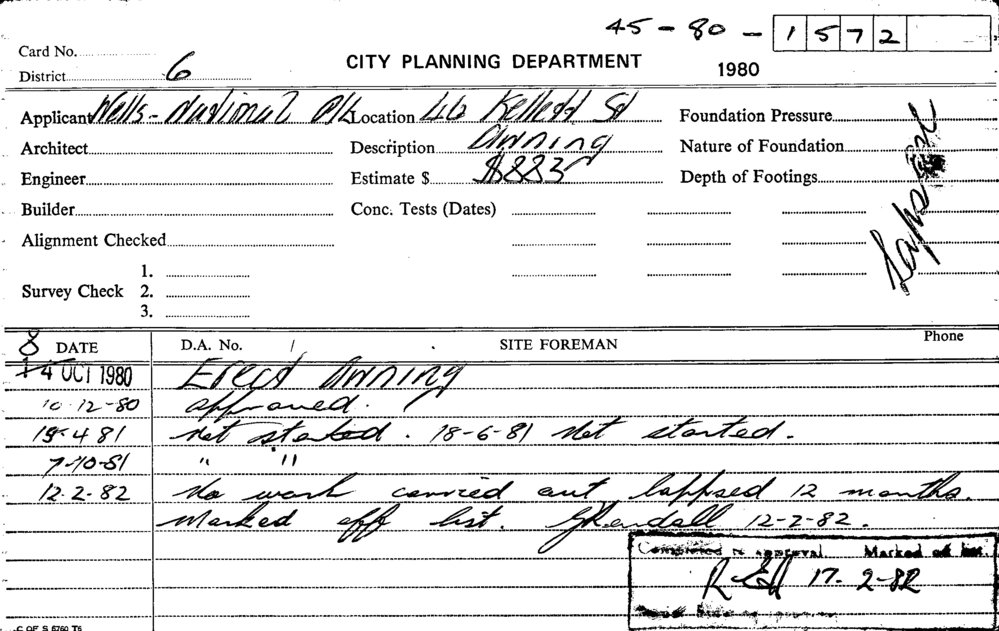 45-80-1572
Card No.
District 6
CITY PLANNING DEPARTMENT
1980
Applicant Wells-National P/L Location 46 Kellett St Foundation Pressure
Architect Description Awning Nature of Foundation
Engineer Estimate $ $885 Depth of Footings
Builder Conc. Tests (Dates)
Lapsed
Alignment Checked
1.
Survey Check 2.
3.
DATE D.A. No. SITE FOREMAN Phone
8
14 OCT 1980 Erect Awning
10-12-80 approved.
15-4-81 Not started. 18-6-81 Not started.
7-10-81 " "
12.2-82 No work carried out lappsed 12 months.
Marked off list. GKendall 12-2-82.
Completed to approval. Marked off list.
17-2-82
C OF S 6760 T6